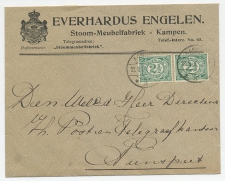 EVERHARDUS ENGELEN.
Stoom-Meubelfabriek - Kampen.
Telegramadres:
„Stoommeubelfabriek".
Telef.-Interc. No. 63.
2½ 2½
Den WelEd. Heer Directeur
Post en Telegraafkantoor
Nunspeet